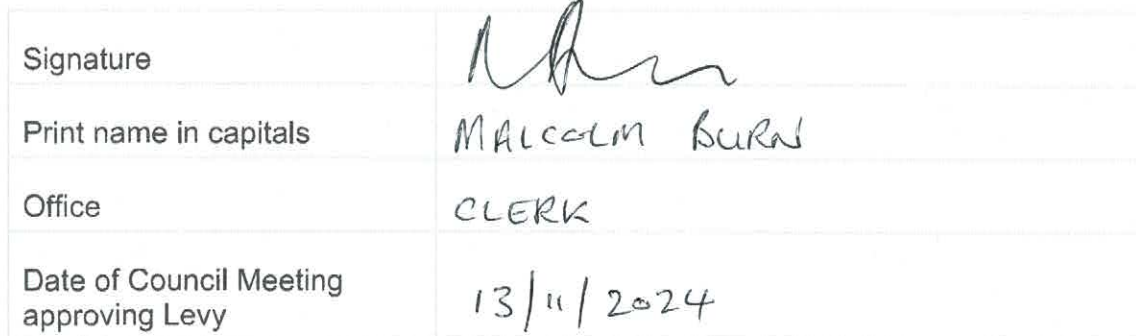 Signature
Print name in capitals MALCOLM BURN
Office CLERK
Date of Council Meeting
approving Levy 13/11/2024